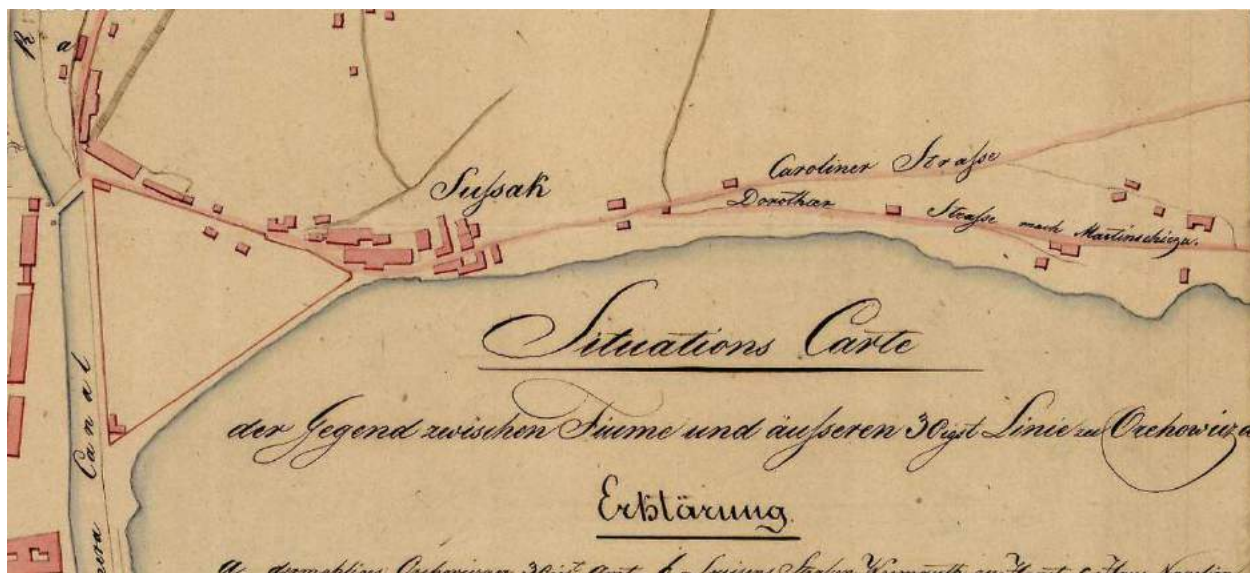 a
Sussak
Caroliner Strasse
Dorothæer Strasse nach Martinschizza.
Canal
Situations Carte
der Gegend zwischen Fiume und äusseren 30igst Linie zu Orehowicza
Erklärung
a 30igst Amt b